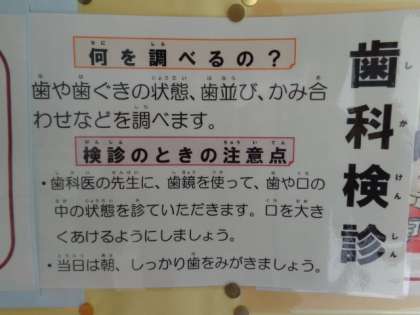 歯科検診
何を調べるの？
歯や歯ぐきの状態、歯並び、かみ合
わせなどを調べます。
検診のときの注意点
・歯科医の先生に、歯鏡を使って、歯や口の
中の状態を診ていただきます。口を大き
くあけるようにしましょう。
・当日は朝、しっかり歯をみがきましょう。